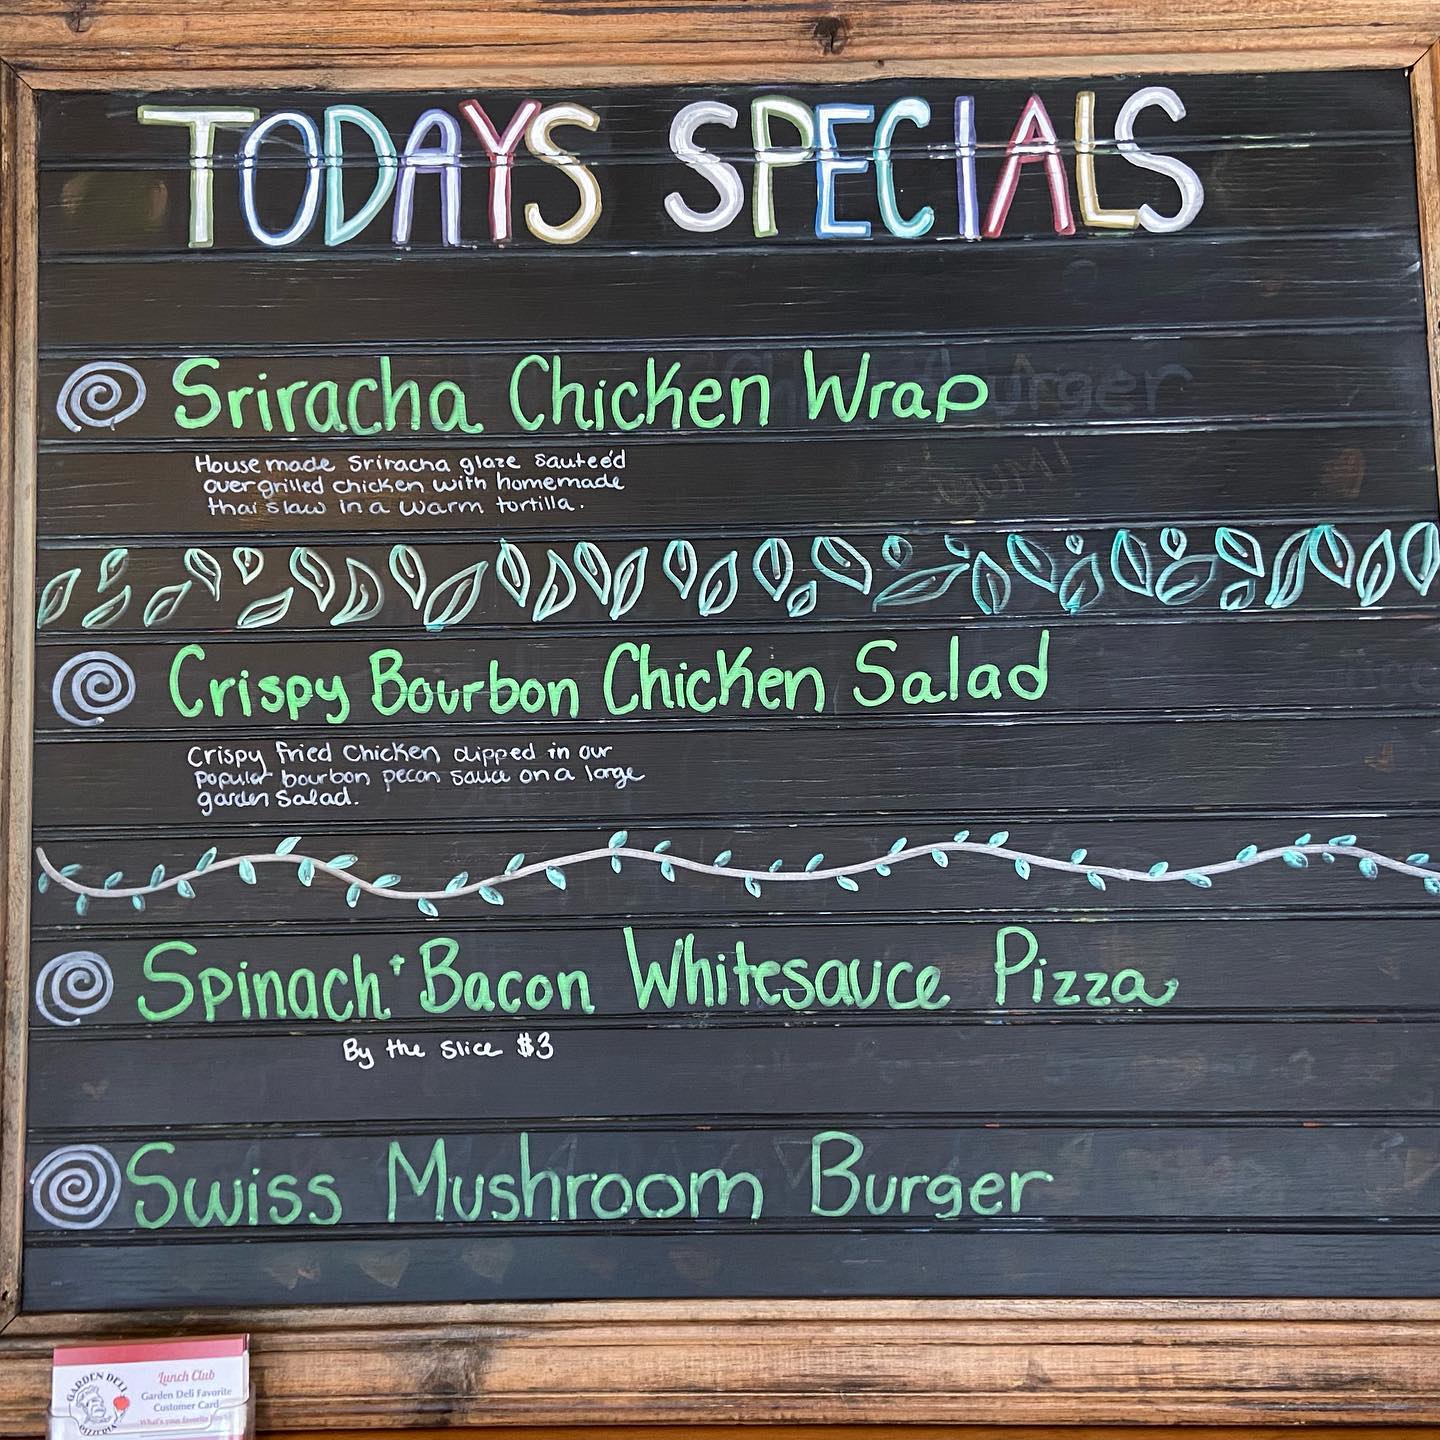 TODAYS SPECIALS
Sriracha Chicken Wrap
House made Sriracha glaze sauteéd
over grilled chicken with homemade
thai slaw in a warm tortilla.
Crispy Bourbon Chicken Salad
Crispy fried Chicken dipped in our
popular bourbon pecan sauce on a large
garden Salad.
Spinach + Bacon Whitesauce Pizza
By the Slice $3
Swiss Mushroom Burger
GARDEN DELI
PIZZERIA
Lunch Club
Garden Deli Favorite
Customer Card
What's your favorite